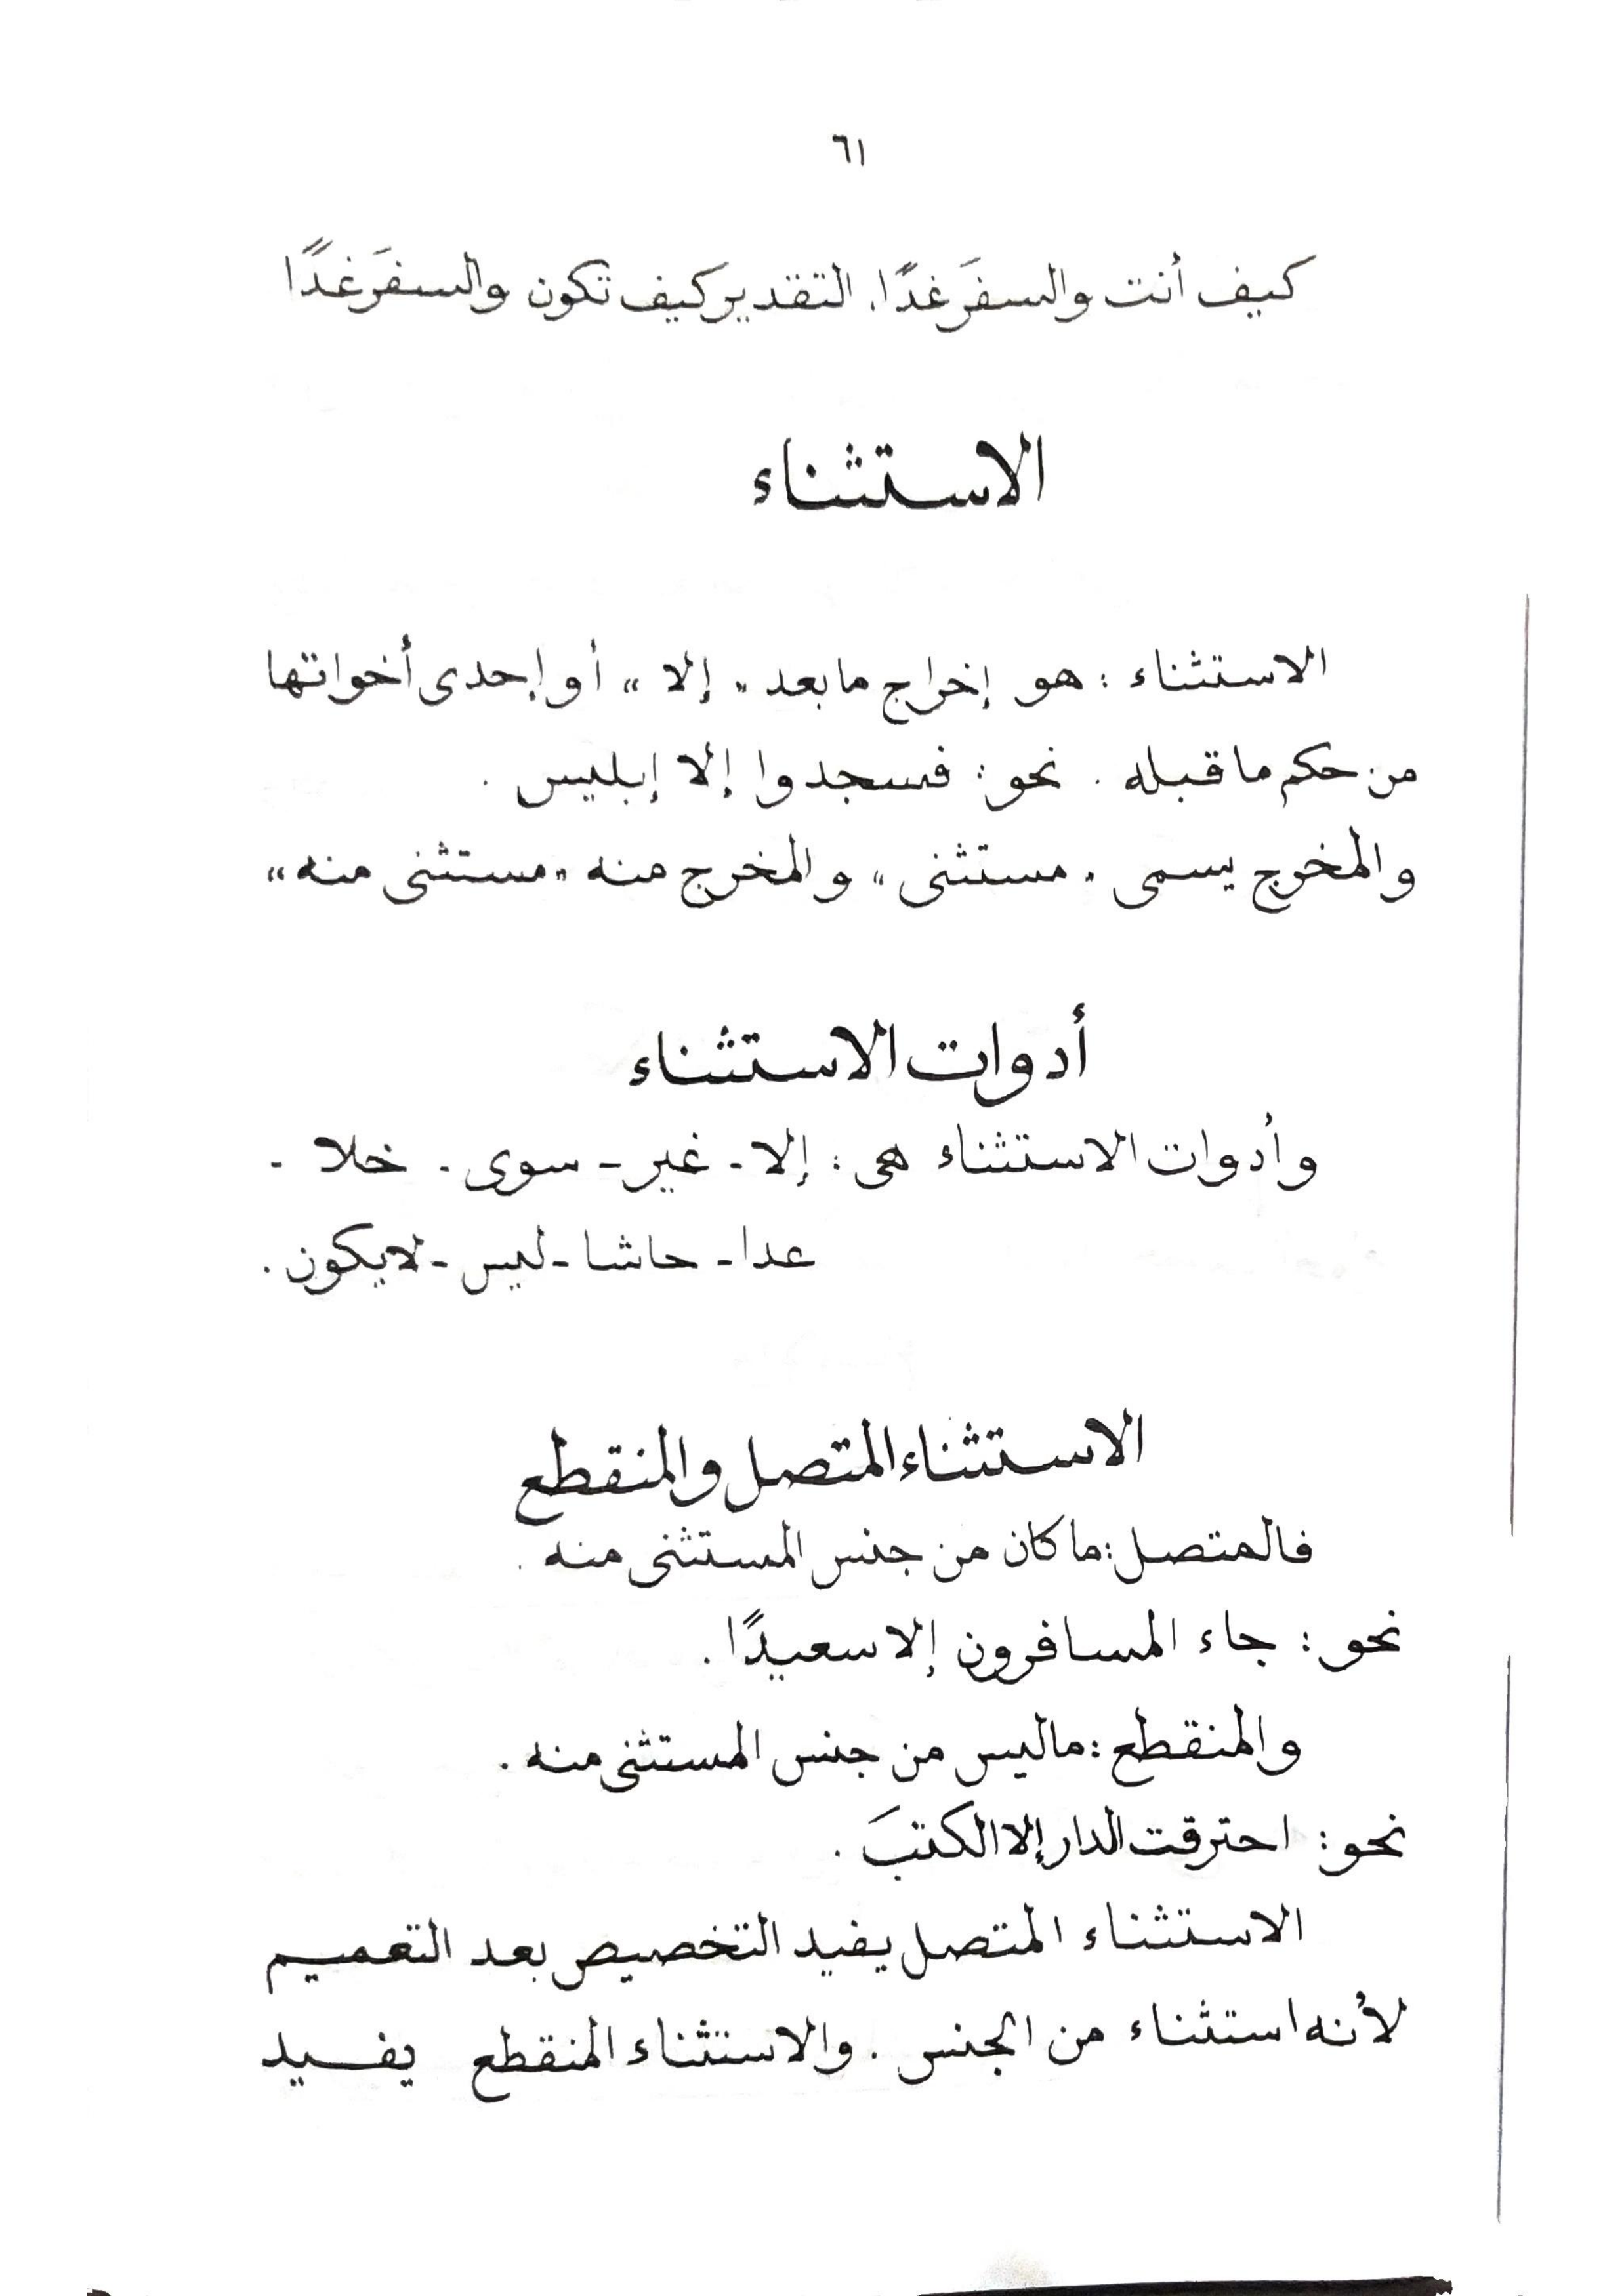 ٦١
كيف أنت والسفَر غدًا. التقدير كيف تكون والسفَر غدًا
الاستثناء
الاستثناء : هو إخراج ما بعد " إلا " أو إحدى أخواتها
من حكم ما قبله . نحو : فسجدوا إلا إبليس .
والمخرج يسمى " مستثنى " والمخرج منه " مستثنى منه "
أدوات الاستثناء
وأدوات الاستثناء هى : إلا - غير - سوى - خلا -
عدا - حاشا - ليس - لا يكون .
الاستثناء المتصل والمنقطع
فالمتصل : ما كان من جنس المستثنى منه .
نحو : جاء المسافرون إلا سعيدًا .
والمنقطع : ما ليس من جنس المستثنى منه .
نحو : احترقت الدار إلا الكتبَ .
الاستثناء المتصل يفيد التخصيص بعد التعميم
لأنه استثناء من الجنس . والاستثناء المنقطع يفيد